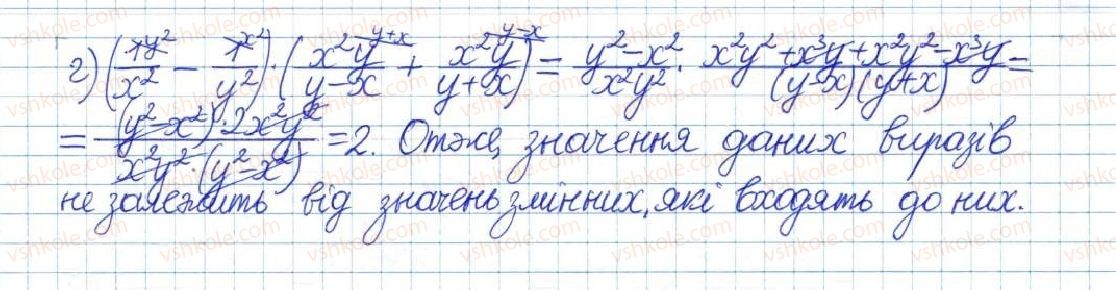 г) (1^{y²}/x² − 1^{x²}/y²) · (x²y^{y+x}/(y−x) + x²y^{y−x}/(y+x)) = (y²−x²)/(x²y²) · (x²y²+x³y+x²y²−x³y)/((y−x)(y+x)) =
= ((y²−x²)·2x²y²)/(x²y²·(y²−x²)) = 2. Отже, значення даних виразів
не залежить від значень змінних, які входять до них.